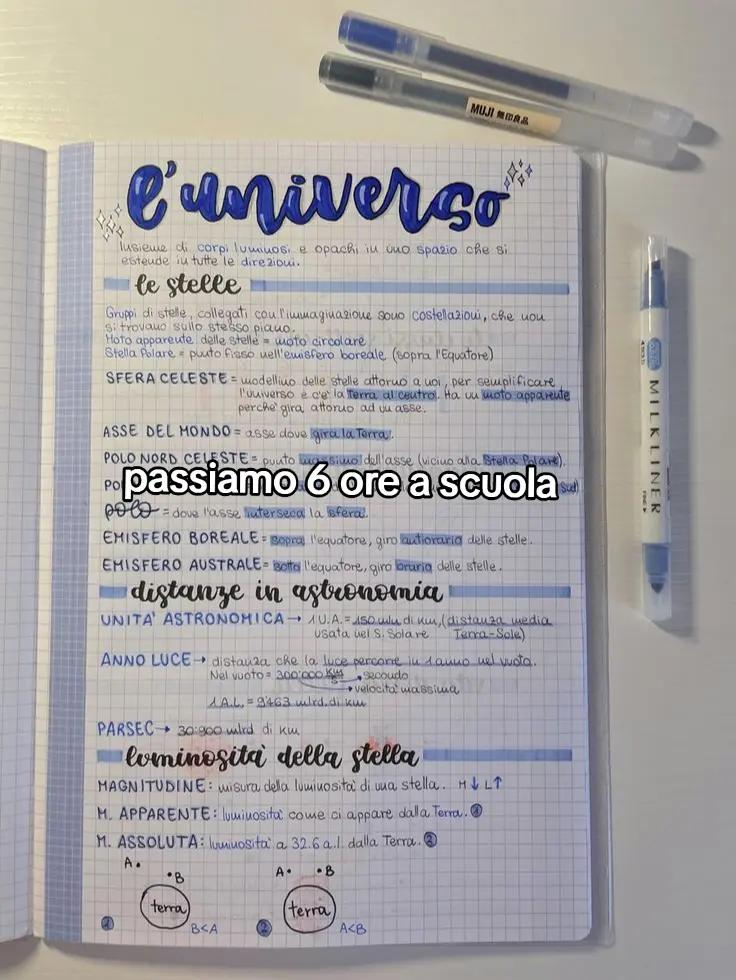 MUJI 無印良品
MILKLINER
l'universo
Insieme di corpi luminosi e opachi in uno spazio che si
estende in tutte le direzioni.
le stelle
Gruppi di stelle, collegati con l'immaginazione sono costellazioni, che non
si trovano sullo stesso piano.
Moto apparente delle stelle = moto circolare
Stella Polare = punto fisso nell'emisfero boreale (sopra l'Equatore)
SFERA CELESTE = modellino delle stelle attorno a noi, per semplificare
l'universo e c'è la Terra al centro. Ha un moto apparente
perché gira attorno ad un asse.
ASSE DEL MONDO = asse dove gira la Terra.
POLO NORD CELESTE = punto massimo dell'asse (vicino alla Stella Polare).
passiamo 6 ore a scuola
Sud)
polo = dove l'asse interseca la sfera.
EMISFERO BOREALE = sopra l'equatore, giro antiorario delle stelle.
EMISFERO AUSTRALE = sotto l'equatore, giro orario delle stelle.
distanze in astronomia
UNITA' ASTRONOMICA → 1 U.A. = 150 mln di km, (distanza media
usata nel S. Solare Terra-Sole)
ANNO LUCE → distanza che la luce percorre in 1 anno nel vuoto.
Nel vuoto = 300'000 km/s → secondo
→ velocità massima
1 A.L. = 9'463 mlrd. di km
PARSEC → 30'900 mlrd di km
luminosità della stella
MAGNITUDINE: misura della luminosità di una stella. M↓ L↑
M. APPARENTE: luminosità come ci appare dalla Terra. ①
M. ASSOLUTA: luminosità a 32.6 a.l. dalla Terra. ②
A. .B A. .B
terra terra
① B<A ② A<B